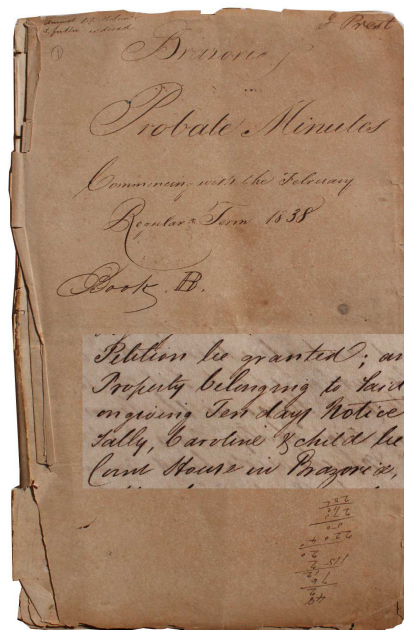 J Prest
Brazoria
Probate Minutes
Commencing with the February
Regular Term 1838
Book B.
Petition be granted; an
Property belonging to Said
on giving Ten days Notice
Sally, Caroline & child be
Court House in Brazoria,